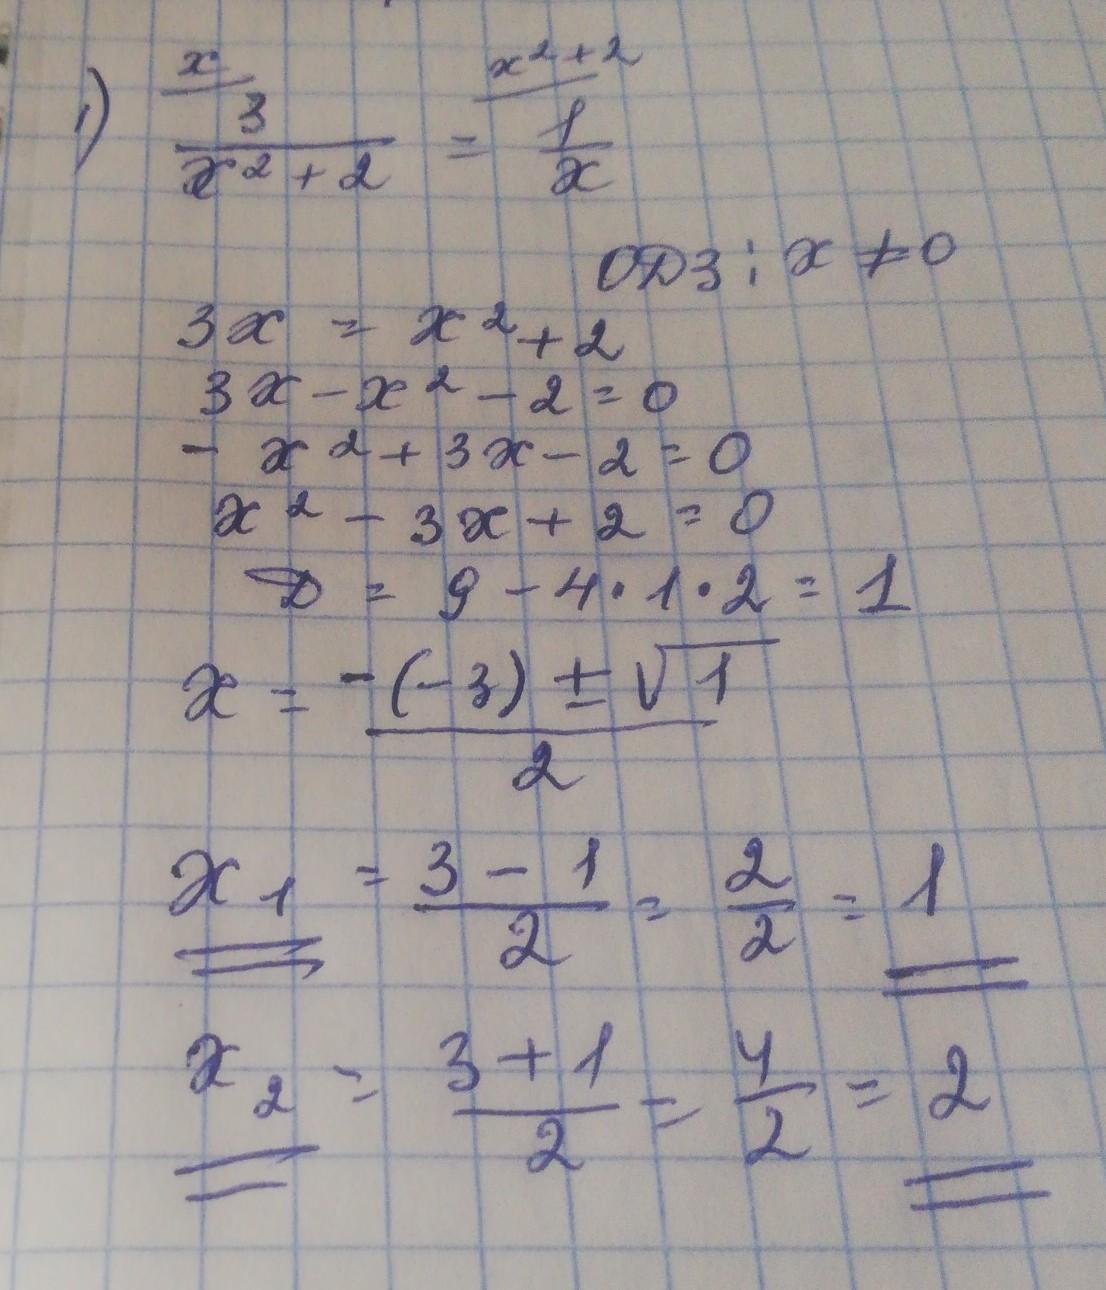 1) x/3/(x²+2) = x²+2/1/x
ОДЗ: x ≠ 0
3x = x² + 2
3x - x² - 2 = 0
- x² + 3x - 2 = 0
x² - 3x + 2 = 0
D = 9 - 4 · 1 · 2 = 1
x = (-(-3) ± √1)/2
x₁ = (3 - 1)/2 = 2/2 = 1
x₂ = (3 + 1)/2 = 4/2 = 2